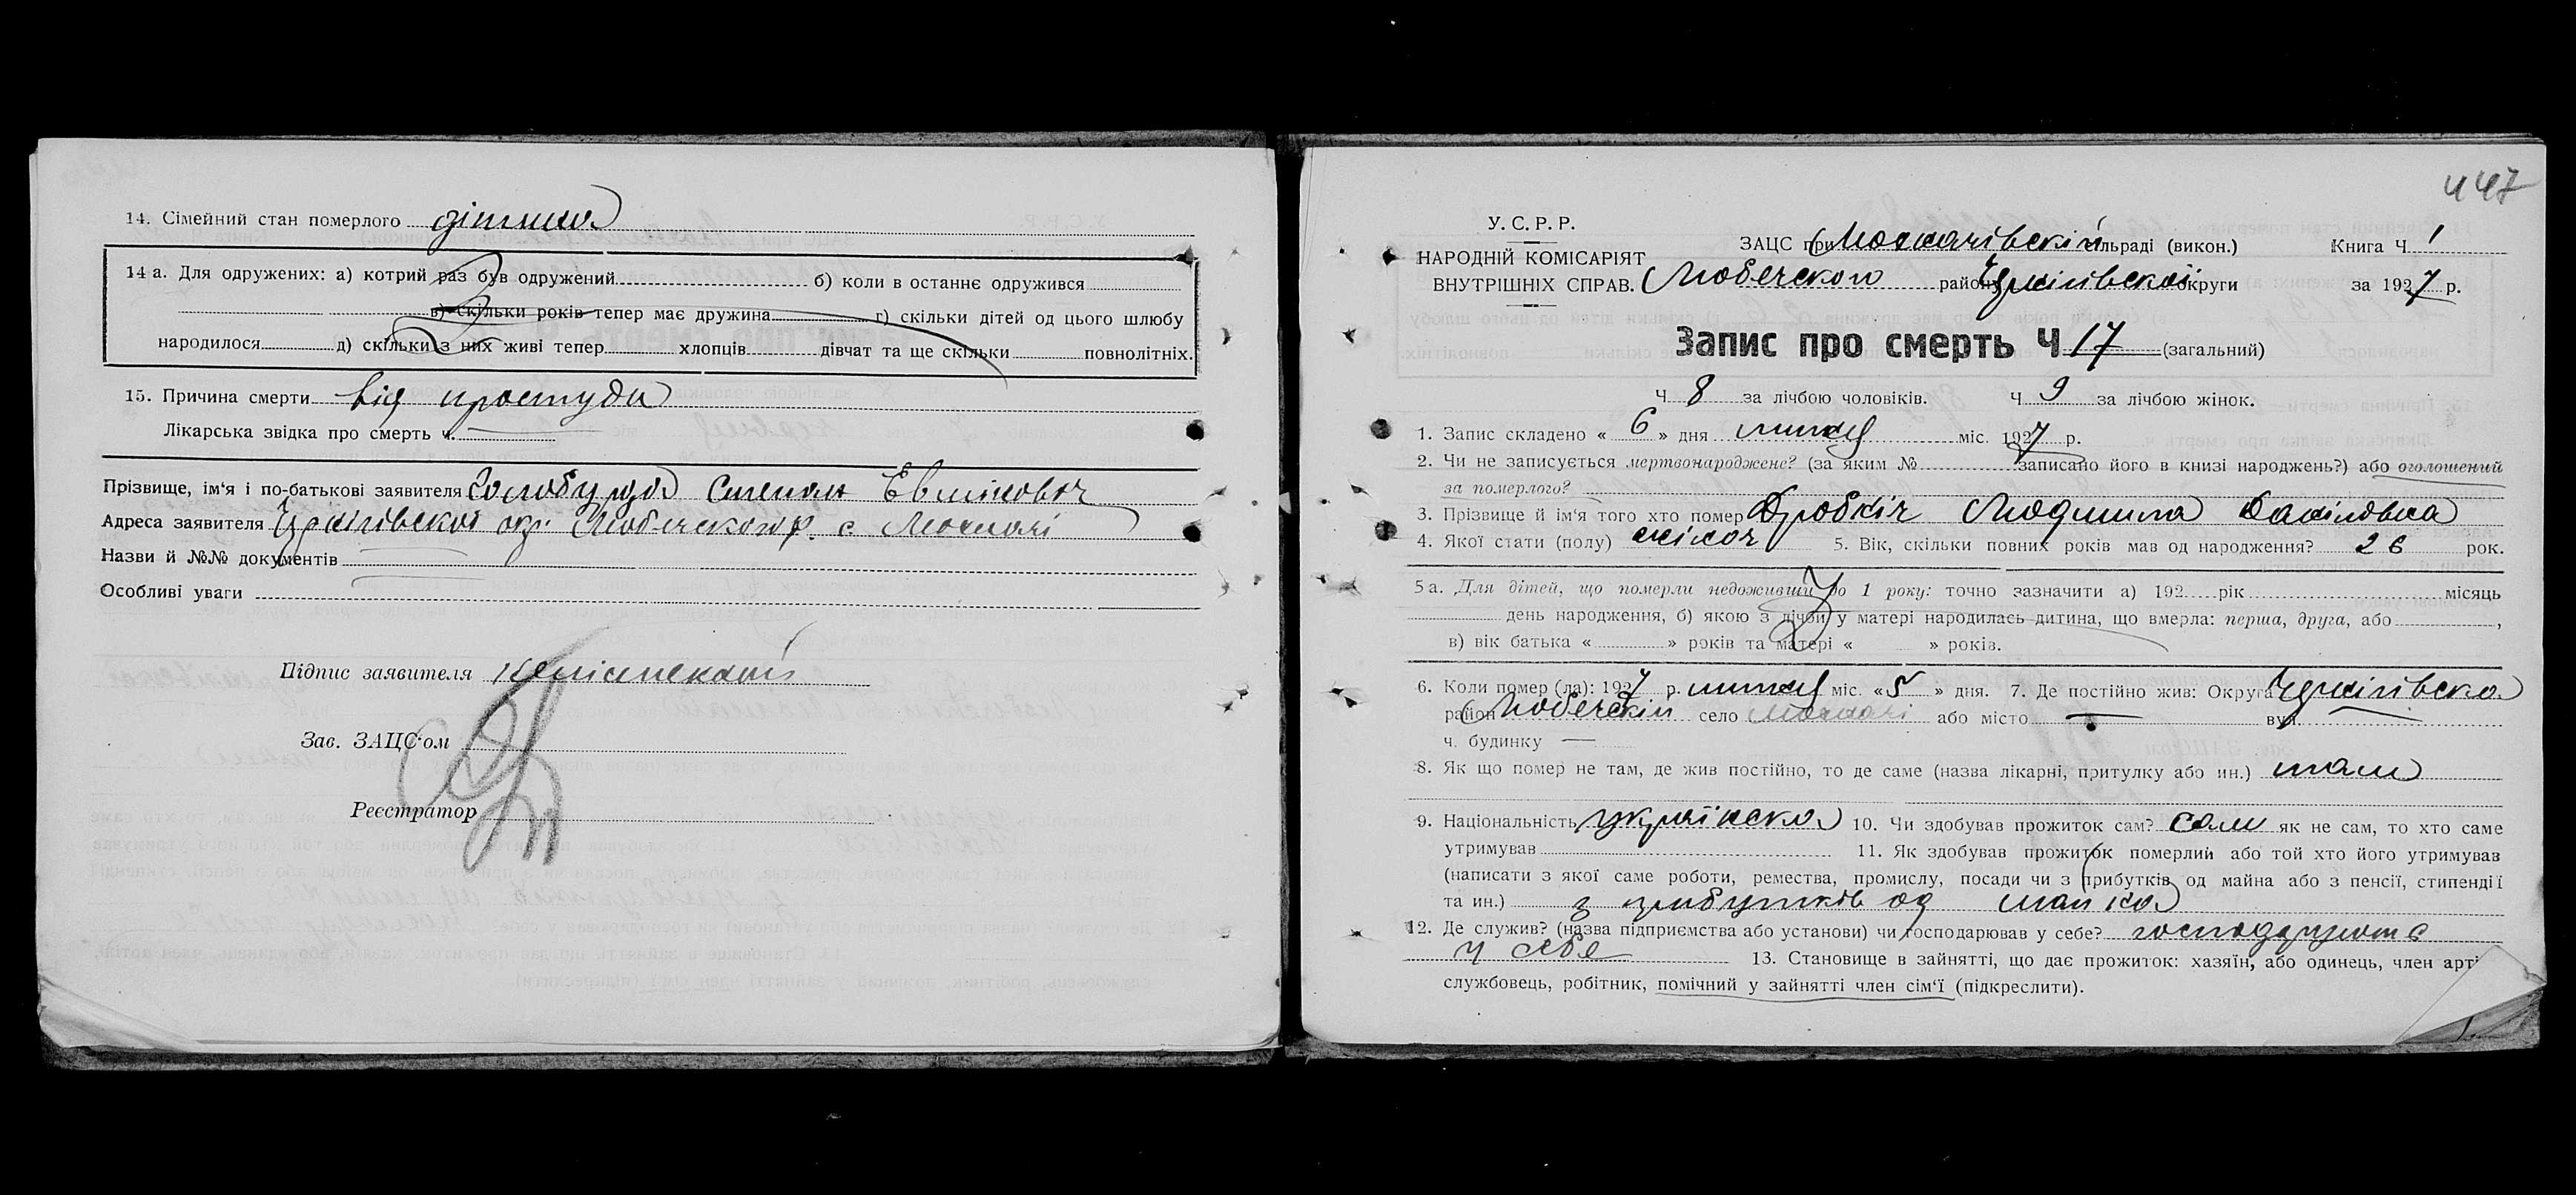 14. Сімейний стан померлого дітина
14 а. Для одружених: а) котрий раз був одружений б) коли в останнє одружився
в) скільки років тепер має дружина г) скільки дітей од цього шлюбу
народилося д) скільки з них живі тепер хлопців дівчат та ще скільки повнолітніх.
15. Причина смерти від простуди
Лікарська звідка про смерть ч.
Прізвище, ім'я і по-батькові заявителя Степан
Адреса заявителя Чернігівскої окр. Любечского р. с
Назви й №№ документів
Особливі уваги
Підпис заявителя
Зав. ЗАЦС'ом
Реєстратор
447
У. С. Р. Р.
НАРОДНІЙ КОМІСАРІЯТ
ВНУТРІШНІХ СПРАВ.
ЗАЦС при сільраді (викон.) Книга Ч 1
Любечского району Чернігівскої округи за 1927 р.
Запис про смерть Ч 17 (загальний)
Ч 8 за лічбою чоловіків. Ч 9 за лічбою жінок.
1. Запис складено « 6 » дня липня міс. 1927 р.
2. Чи не записується мертвонароджене? (за яким № записано його в книзі народжень?) або оголошений
за померлого?
3. Прізвище й ім'я того хто помер Дробкіч Людмила Даніловна
4. Якої стати (полу) жіноч 5. Вік, скільки повних років мав од народження? 26 рок.
5 а. Для дітей, що померли недоживши до 1 року: точно зазначити а) 192 рік місяць
день народження, б) якою з лічби у матері народилась дитина, що вмерла: перша, друга, або ,
в) вік батька « » років та матері « » років.
6. Коли помер (ла): 1927 р. липня міс. « 5 » дня. 7. Де постійно жив: Округа Чернігівска
район Любечскій село або місто — вул.
ч. будинку —
8. Як що помер не там, де жив постійно, то де саме (назва лікарні, притулку або ин.) там
9. Національність українска 10. Чи здобував прожиток сам? сам як не сам, то хто саме
утримував 11. Як здобував прожиток померлий або той хто його утримував
(написати з якої саме роботи, ремества, промислу, посади чи з прибутків од майна або з пенсії, стипендії
та ин.) з прибутків од майна
12. Де служив? (назва підприємства або установи) чи господарював у себе? господарює
у себе 13. Становище в зайнятті, що дає прожиток: хазяїн, або одинець, член арті
службовець, робітник, помічний у зайнятті член сім'ї (підкреслити).